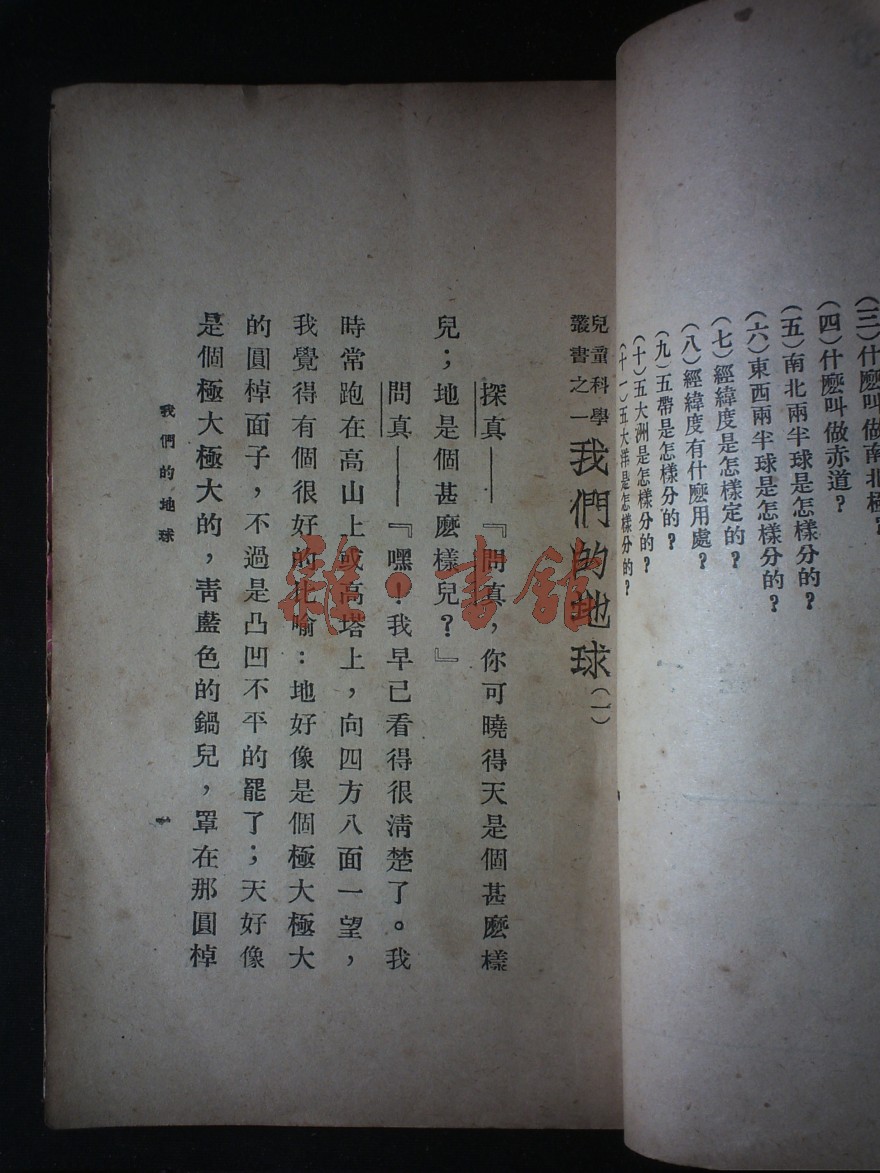 (三)什麽叫做南北極?
(四)什麽叫做赤道?
(五)南北兩半球是怎樣分的?
(六)東西兩半球是怎樣分的?
(七)經緯度是怎樣定的?
(八)經緯度有什麽用處?
(九)五帶是怎樣分的?
(十)五大洲是怎樣分的?
(十一)五大洋是怎樣分的?
兒童科學
叢書之一
我們的地球(一)
探真——『問真,你可曉得天是個甚麽樣
兒;地是個甚麽樣兒?』
問真——『嘿!我早已看得很清楚了。我
時常跑在高山上或高塔上,向四方八面一望,
我覺得有個很好的比喻:地好像是個極大極大
的圓棹面子,不過是凸凹不平的罷了;天好像
是個極大極大的,靑藍色的鍋兒,罩在那圓棹
我們的地球
一
雜·書館